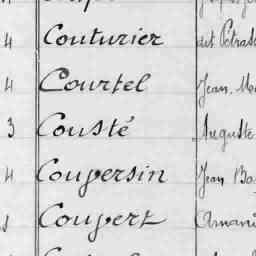 4 Couturier dit Pétras
4 Courtel Jean, M
3 Cousté Auguste
4 Coupersin Jean Ba
Coupert Amand